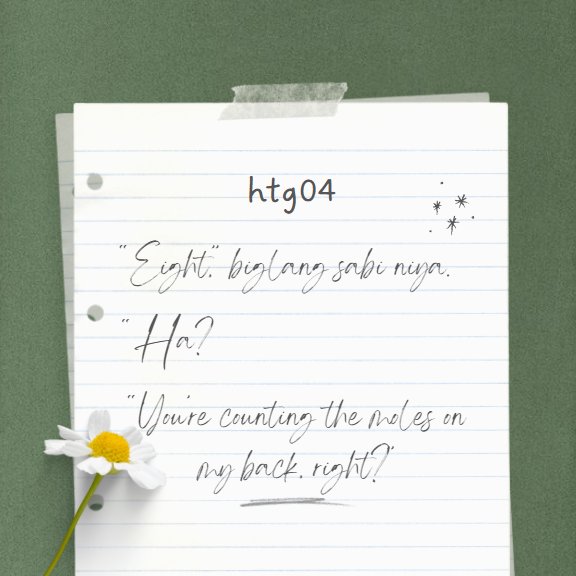 htg04
"Eight," biglang sabi niya.
"Ha?
"You're counting the moles on
my back, right?"